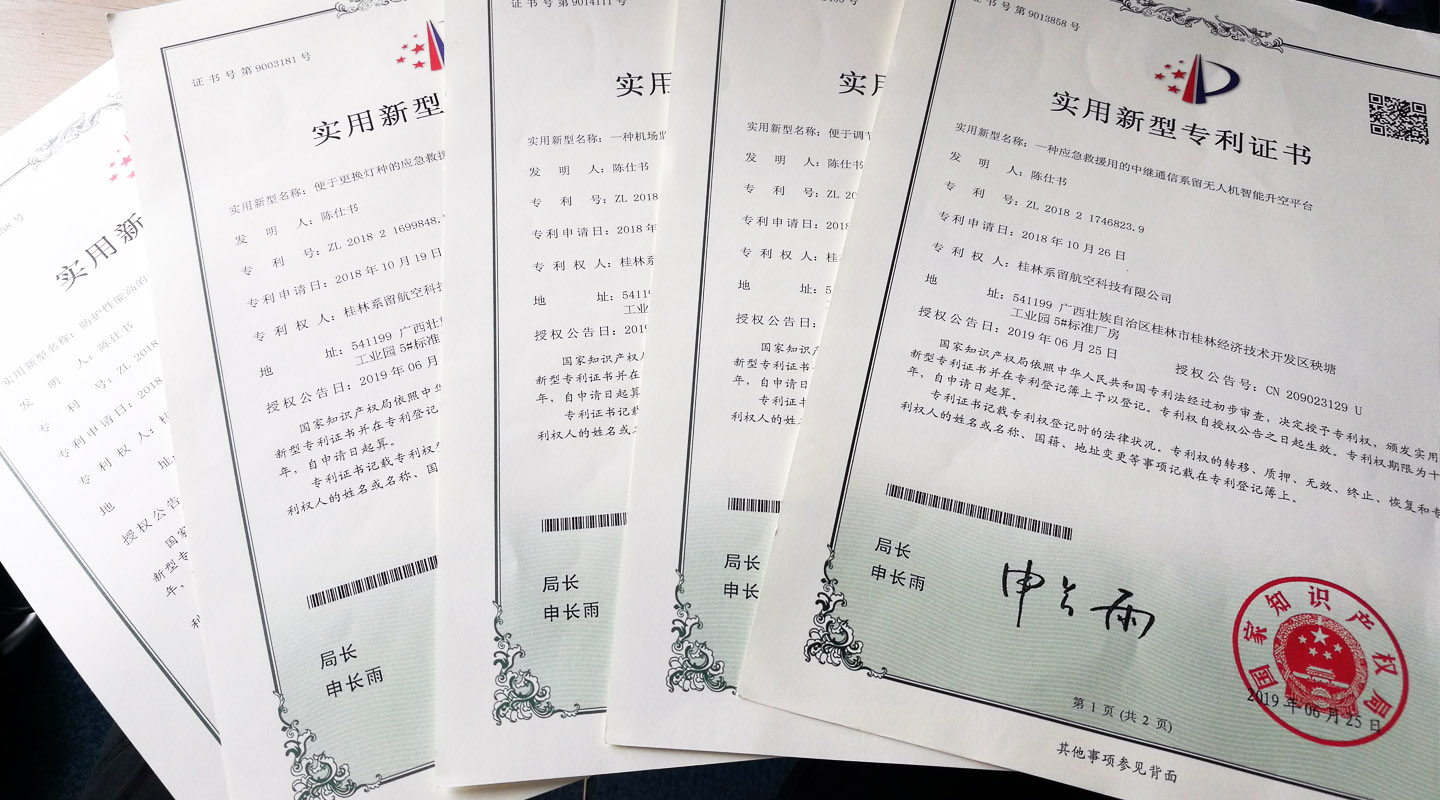 实用新
实用新型名称：防护性能高的
发 明 人：陈仕书
专 利 号：ZL 2018
专利申请日：2018
专 利 权 人：桂
地 址：
授权公告
国家
新型专
年，
利
证书号第9003181号
实用新型
实用新型名称：便于更换灯种的应急救援
发 明 人：陈仕书
专 利 号：ZL 2018 2 1699848.
专利申请日：2018年10月19日
专 利 权 人：桂林系留航空科技
地 址：541199 广西壮
工业园 5#标准
授权公告日：2019年06月
国家知识产权局依照中华
新型专利证书并在专利登记
年，自申请日起算。
专利证书记载专利权
利权人的姓名或名称、国
局长
申长雨
证书号第9014111号
实用
实用新型名称：一种机场监
发 明 人：陈仕书
专 利 号：ZL 2018
专利申请日：2018年
专 利 权 人：桂林系
地 址：54119
工业园
授权公告日：2019
国家知识产权局
新型专利证书并在
年，自申请日起算
专利证书记载
利权人的姓名或
局长
申长雨
实用
实用新型名称：便于调节
发 明 人：陈仕书
专 利 号：ZL 20
专利申请日：2018
专 利 权 人：桂
地 址：5
授权公告日：
国家知识产
新型专利证书并
年，自申请日起
专利证书
利权人的姓名
局长
申长
证书号第9013858号
实用新型专利证书
实用新型名称：一种应急救援用的中继通信系留无人机智能升空平台
发 明 人：陈仕书
专 利 号：ZL 2018 2 1746823.9
专利申请日：2018年10月26日
专 利 权 人：桂林系留航空科技有限公司
地 址：541199 广西壮族自治区桂林市桂林经济技术开发区秧塘
工业园 5#标准厂房
授权公告日：2019年06月25日 授权公告号：CN 209023129 U
国家知识产权局依照中华人民共和国专利法经过初步审查，决定授予专利权，颁发实用
新型专利证书并在专利登记簿上予以登记。专利权自授权公告之日起生效。专利权期限为十
年，自申请日起算。
专利证书记载专利权登记时的法律状况。专利权的转移、质押、无效、终止、恢复和专
利权人的姓名或名称、国籍、地址变更等事项记载在专利登记簿上。
局长
申长雨
申长雨
国家知识产权局
2019年06月25日
第 1 页 (共 2 页)
其他事项参见背面